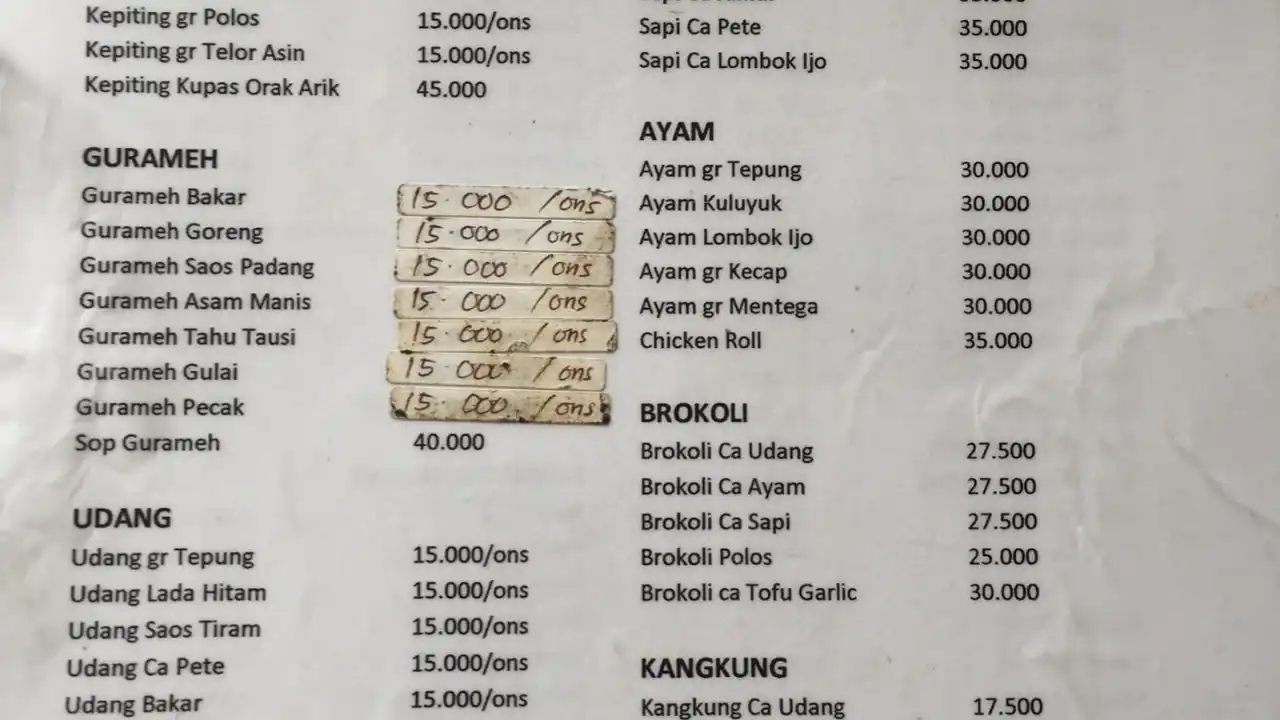 Kepiting gr Polos 15.000/ons
Kepiting gr Telor Asin 15.000/ons
Kepiting Kupas Orak Arik 45.000
GURAMEH
Gurameh Bakar 15.000 /ons
Gurameh Goreng 15.000 /ons
Gurameh Saos Padang 15.000 /ons
Gurameh Asam Manis 15.000 /ons
Gurameh Tahu Tausi 15.000 /ons
Gurameh Gulai 15.000 /ons
Gurameh Pecak 15.000 /ons
Sop Gurameh 40.000
UDANG
Udang gr Tepung 15.000/ons
Udang Lada Hitam 15.000/ons
Udang Saos Tiram 15.000/ons
Udang Ca Pete 15.000/ons
Udang Bakar 15.000/ons
Sapi Ca Pete 35.000
Sapi Ca Lombok Ijo 35.000
AYAM
Ayam gr Tepung 30.000
Ayam Kuluyuk 30.000
Ayam Lombok Ijo 30.000
Ayam gr Kecap 30.000
Ayam gr Mentega 30.000
Chicken Roll 35.000
BROKOLI
Brokoli Ca Udang 27.500
Brokoli Ca Ayam 27.500
Brokoli Ca Sapi 27.500
Brokoli Polos 25.000
Brokoli ca Tofu Garlic 30.000
KANGKUNG
Kangkung Ca Udang 17.500